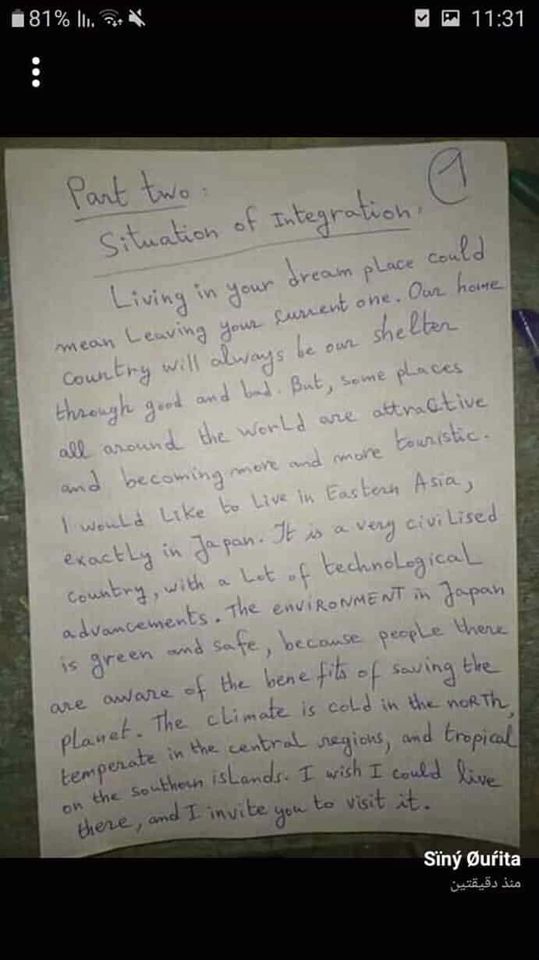 81%
11:31
1
Part two:
Situation of Integration:
Living in your dream place could
mean Leaving your current one. Our home
country will always be our shelter
through good and bad. But, some places
all around the world are attractive
and becoming more and more touristic.
I would Like to Live in Eastern Asia,
exactly in Japan. It is a very civilised
country, with a Lot of technological
advancements. The enviRONMENT in Japan
is green and safe, because people there
are aware of the benefits of saving the
planet. The climate is cold in the noRTh,
temperate in the central regions, and tropical
on the southern islands. I wish I could live
there, and I invite you to visit it.
Sïný Øuŕita
منذ دقيقتين